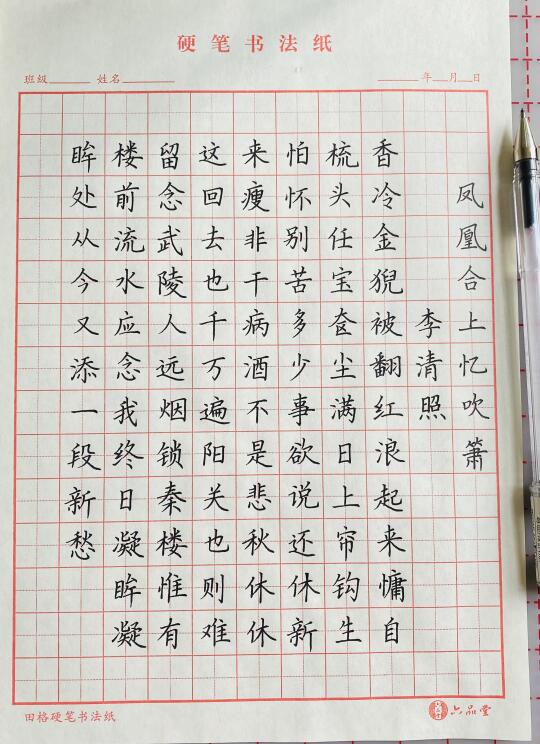 硬笔书法纸
班级 姓名 年 月 日
凤凰合上忆吹箫
李清照
香冷金猊被翻红浪起来慵自
梳头任宝奁尘满日上帘钩生
怕怀别苦多少事欲说还休新
来瘦非干病酒不是悲秋休休
这回去也千万遍阳关也则难
留念武陵人远烟锁秦楼惟有
楼前流水应念我终日凝眸凝
眸处从今又添一段新愁
田格硬笔书法纸
六品堂